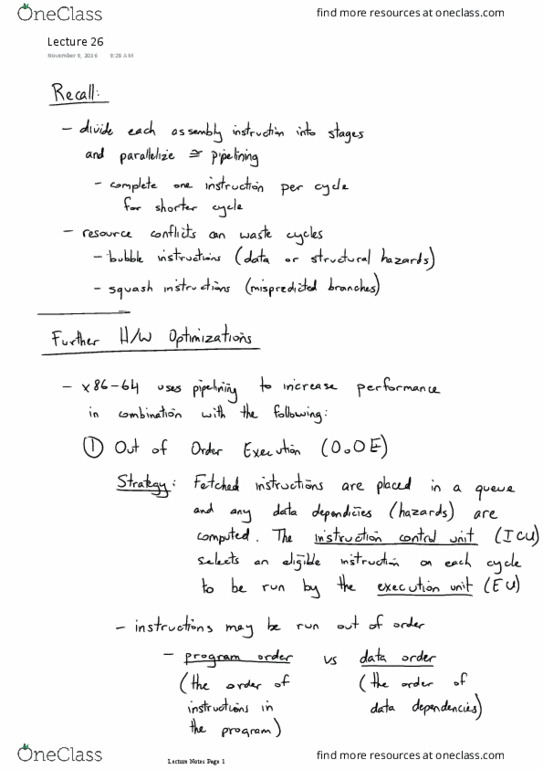 OneClass
find more resources at oneclass.com
Lecture 26
November 9, 2016 9:29 AM
Recall:
- divide each assembly instruction into stages
and parallelize ≅ pipelining
- complete one instruction per cycle
for shorter cycle
- resource conflicts can waste cycles
- bubble instructions (data or structural hazards)
- squash instructions (mispredicted branches)
Further H/W Optimizations
- x86-64 uses pipelining to increase performance
in combination with the following:
① Out of Order Execution (O.OE)
Strategy: Fetched instructions are placed in a queue
and any data dependicies (hazards) are
computed. The instruction control unit (ICU)
selects an eligible instruction on each cycle
to be run by the execution unit (EU)
- instructions may be run out of order
- program order vs data order
(the order of (the order of
instructions in data dependencies)
the program)
Lecture Notes Page 1
OneClass
find more resources at oneclass.com